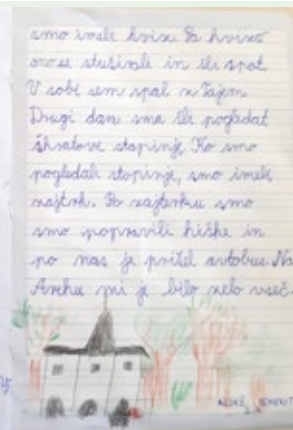 smo imeli kviz. Po kvizu
smo se stuširali in šli spat.
V sobi sem spal z Tajem.
Drugi dan smo šli pogledat
škratove stopinje. Ko smo
pogledali stopinje, smo imeli
zajtrk. Po zajterku smo
smo popravili hiške in
po nas je prišel avtobus. Na
Arehu mi je bilo zelo všeč.